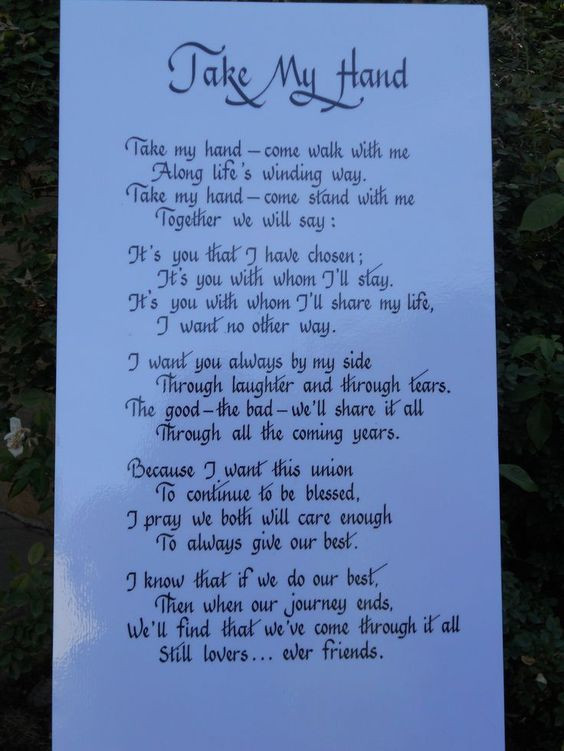 Take My Hand
Take my hand – come walk with me
Along life's winding way.
Take my hand – come stand with me
Together we will say:
It's you that I have chosen;
It's you with whom I'll stay.
It's you with whom I'll share my life,
I want no other way.
I want you always by my side
Through laughter and through tears.
The good – the bad – we'll share it all
Through all the coming years.
Because I want this union
To continue to be blessed,
I pray we both will care enough
To always give our best.
I know that if we do our best,
Then when our journey ends,
We'll find that we've come through it all
Still lovers... ever friends.